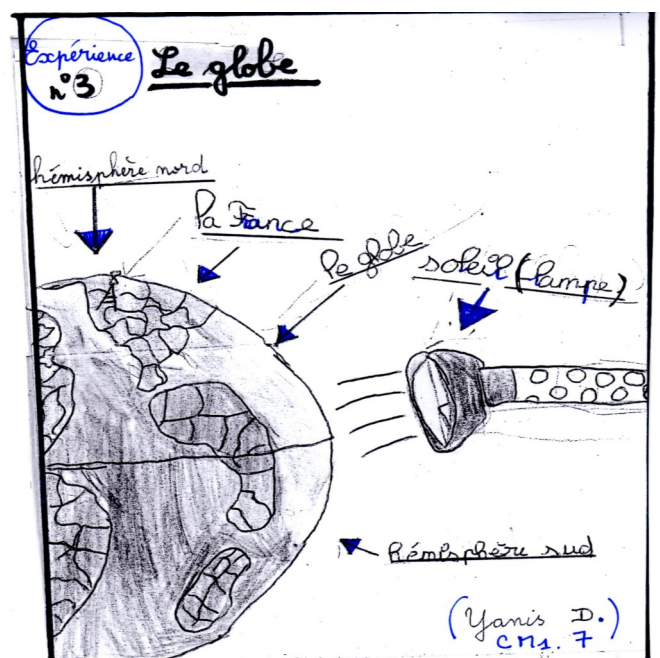 Expérience
n°3
Le globe
hémisphère nord
la France
le globe
soleil (lampe)
hémisphère sud
(Yanis D.)
CM1. 7